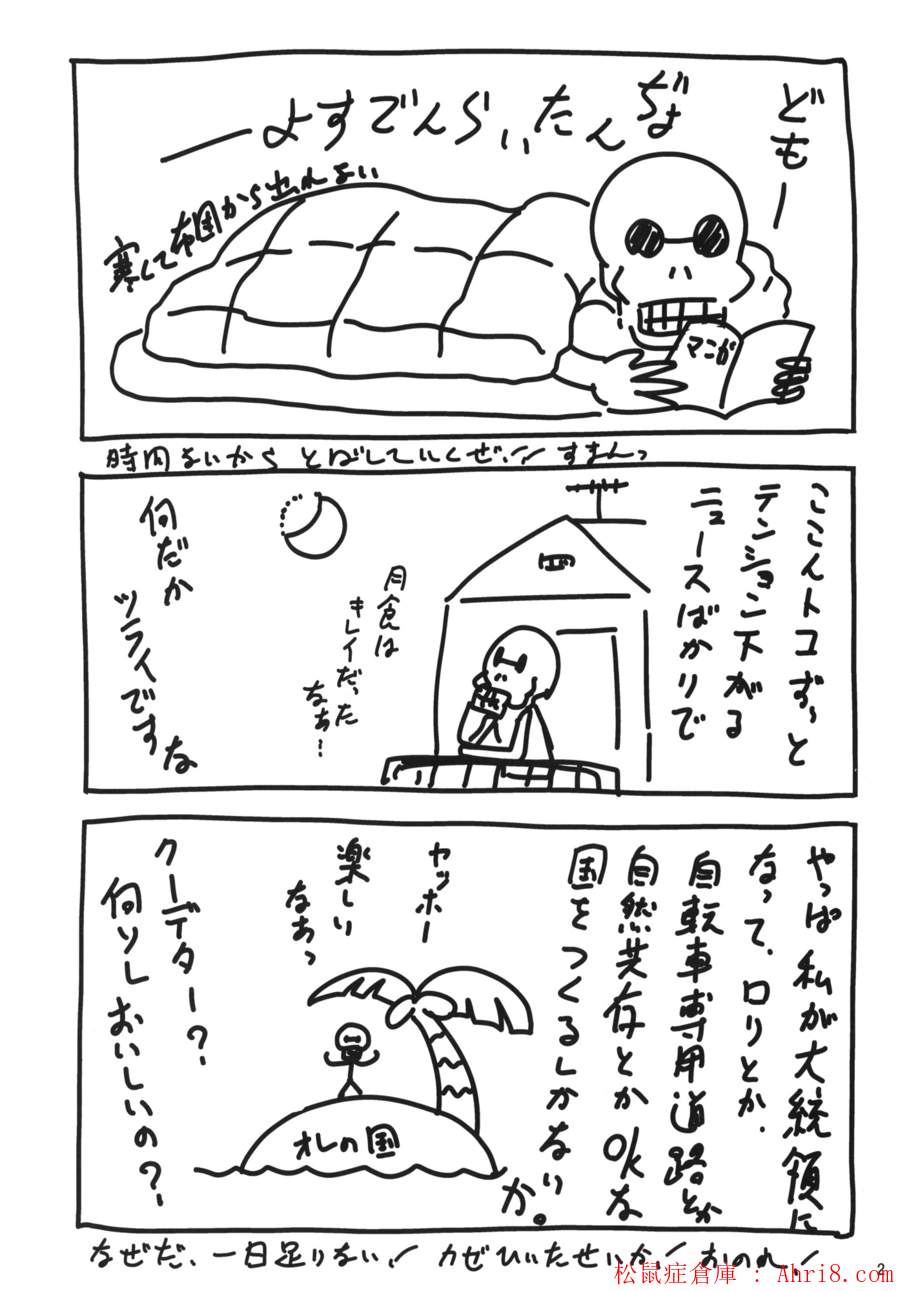 どもー
ぢょんたいらんですよー
寒くて布団から出れない
マンガ
時間ないから とばしていくぜ!! すまんっ
ここんトコずーっと
テンション下がる
ニュースばかりで
月食は
キレイだった
なぁ〜
何だか
ツライですな
やっぱ私が大統領に
なって、ロリとか、
自転車専用道路とか
自然共存とかOKな
国をつくるしかないか。
ヤッホー
楽しい
なぁっ
オレの国
クーデター?
何ソレおいしいの?
なぜだ、一日足りない! カゼひいたせいか! おのれ!
2
松鼠症倉庫 : Ahri8.com